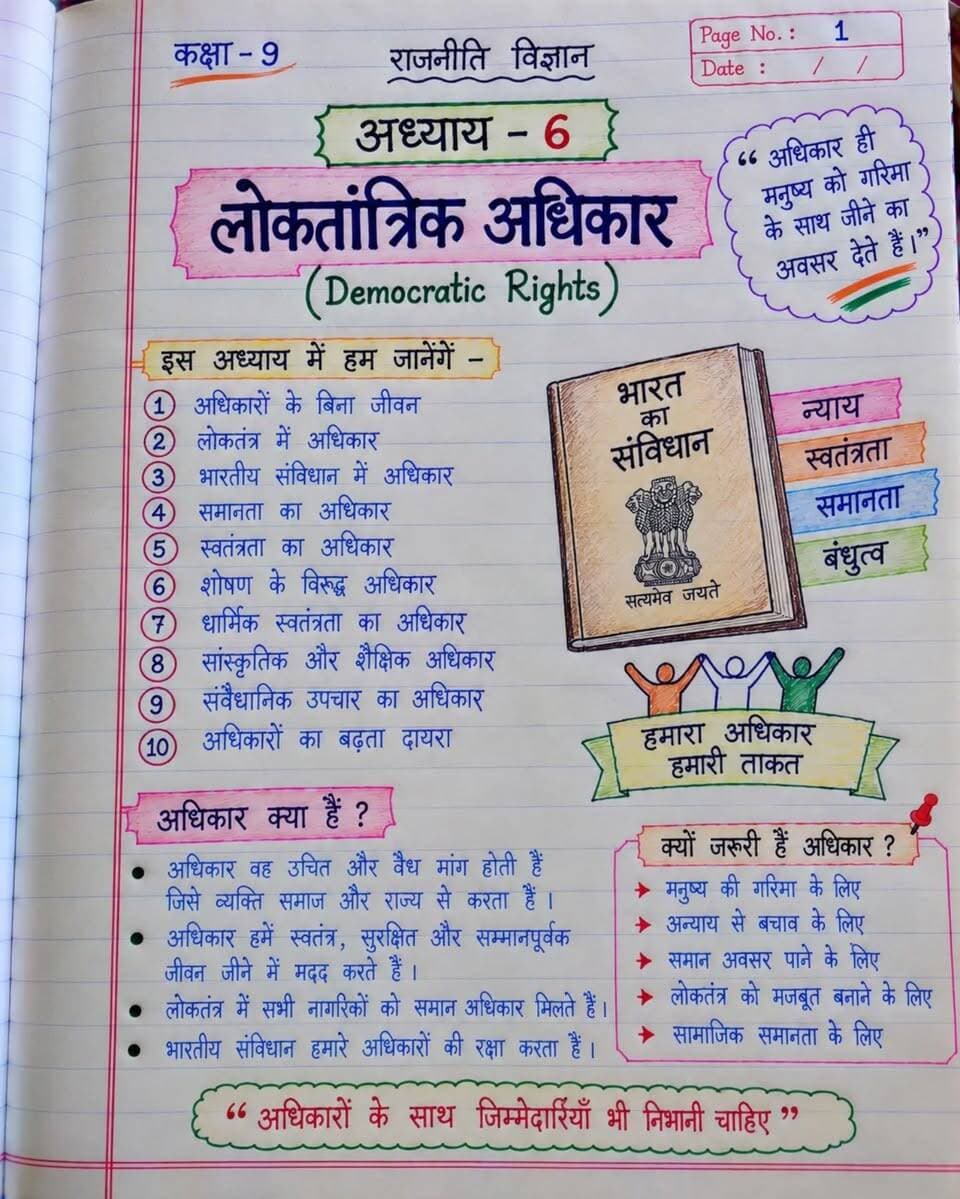 कक्षा - 9
राजनीति विज्ञान
Page No. : 1
Date : / /
अध्याय - 6
लोकतांत्रिक अधिकार
(Democratic Rights)
“ अधिकार ही
मनुष्य को गरिमा
के साथ जीने का
अवसर देते हैं।”
इस अध्याय में हम जानेंगें -
1 अधिकारों के बिना जीवन
2 लोकतंत्र में अधिकार
3 भारतीय संविधान में अधिकार
4 समानता का अधिकार
5 स्वतंत्रता का अधिकार
6 शोषण के विरूद्ध अधिकार
7 धार्मिक स्वतंत्रता का अधिकार
8 सांस्कृतिक और शैक्षिक अधिकार
9 संवैधानिक उपचार का अधिकार
10 अधिकारों का बढ़ता दायरा
भारत
का
संविधान
सत्यमेव जयते
न्याय
स्वतंत्रता
समानता
बंधुत्व
हमारा अधिकार
हमारी ताकत
अधिकार क्या हैं ?
• अधिकार वह उचित और वैध मांग होती हैं
जिसे व्यक्ति समाज और राज्य से करता हैं ।
• अधिकार हमें स्वतंत्र, सुरक्षित और सम्मानपूर्वक
जीवन जीने में मदद करते हैं ।
• लोकतंत्र में सभी नागरिकों को समान अधिकार मिलते हैं।
• भारतीय संविधान हमारे अधिकारों की रक्षा करता हैं ।
क्यों जरूरी हैं अधिकार ?
➔ मनुष्य की गरिमा के लिए
➔ अन्याय से बचाव के लिए
➔ समान अवसर पाने के लिए
➔ लोकतंत्र को मजबूत बनाने के लिए
➔ सामाजिक समानता के लिए
“ अधिकारों के साथ जिम्मेदारियाँ भी निभानी चाहिए ”